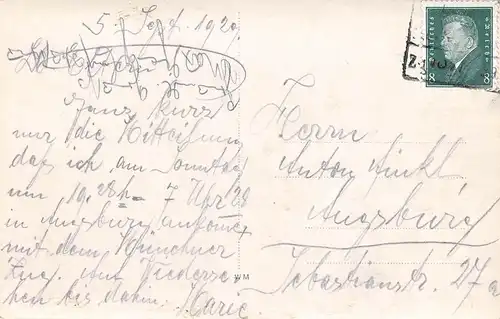 5. Sept. 1929.
Ganz kurz
nur die Mitteilung
daß ich am Sonntag
um 19.28 h = 7 Uhr 28
in Augsburg ankomme
mit dem Münchner
Zug. Auf Wiederse-
hen bis dahin. Marie.
WM
Herrn
Anton Finkl
Augsburg
Sebastianstr. 27a
8 Deutsches Reich 8